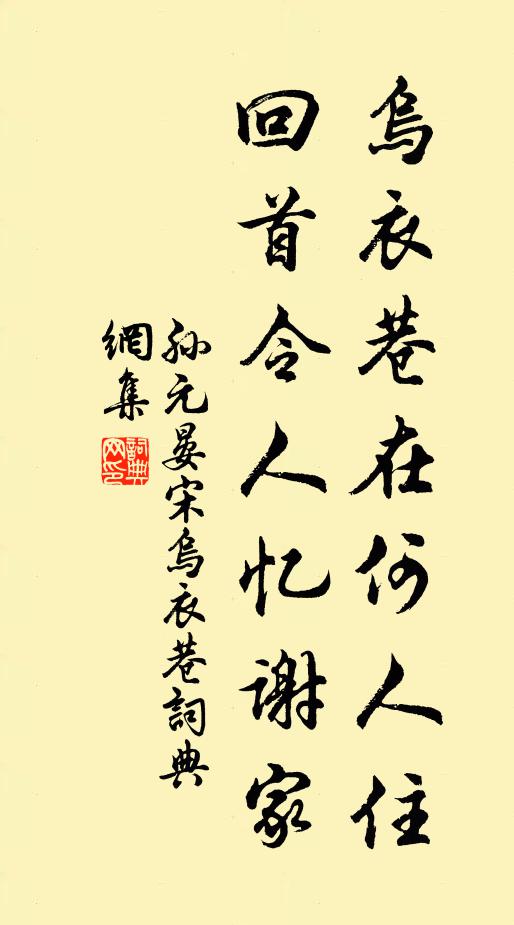 烏衣巷在何人住
回首令人忆謝家
孙元晏宋烏衣巷詞典
網集
詞典
网印